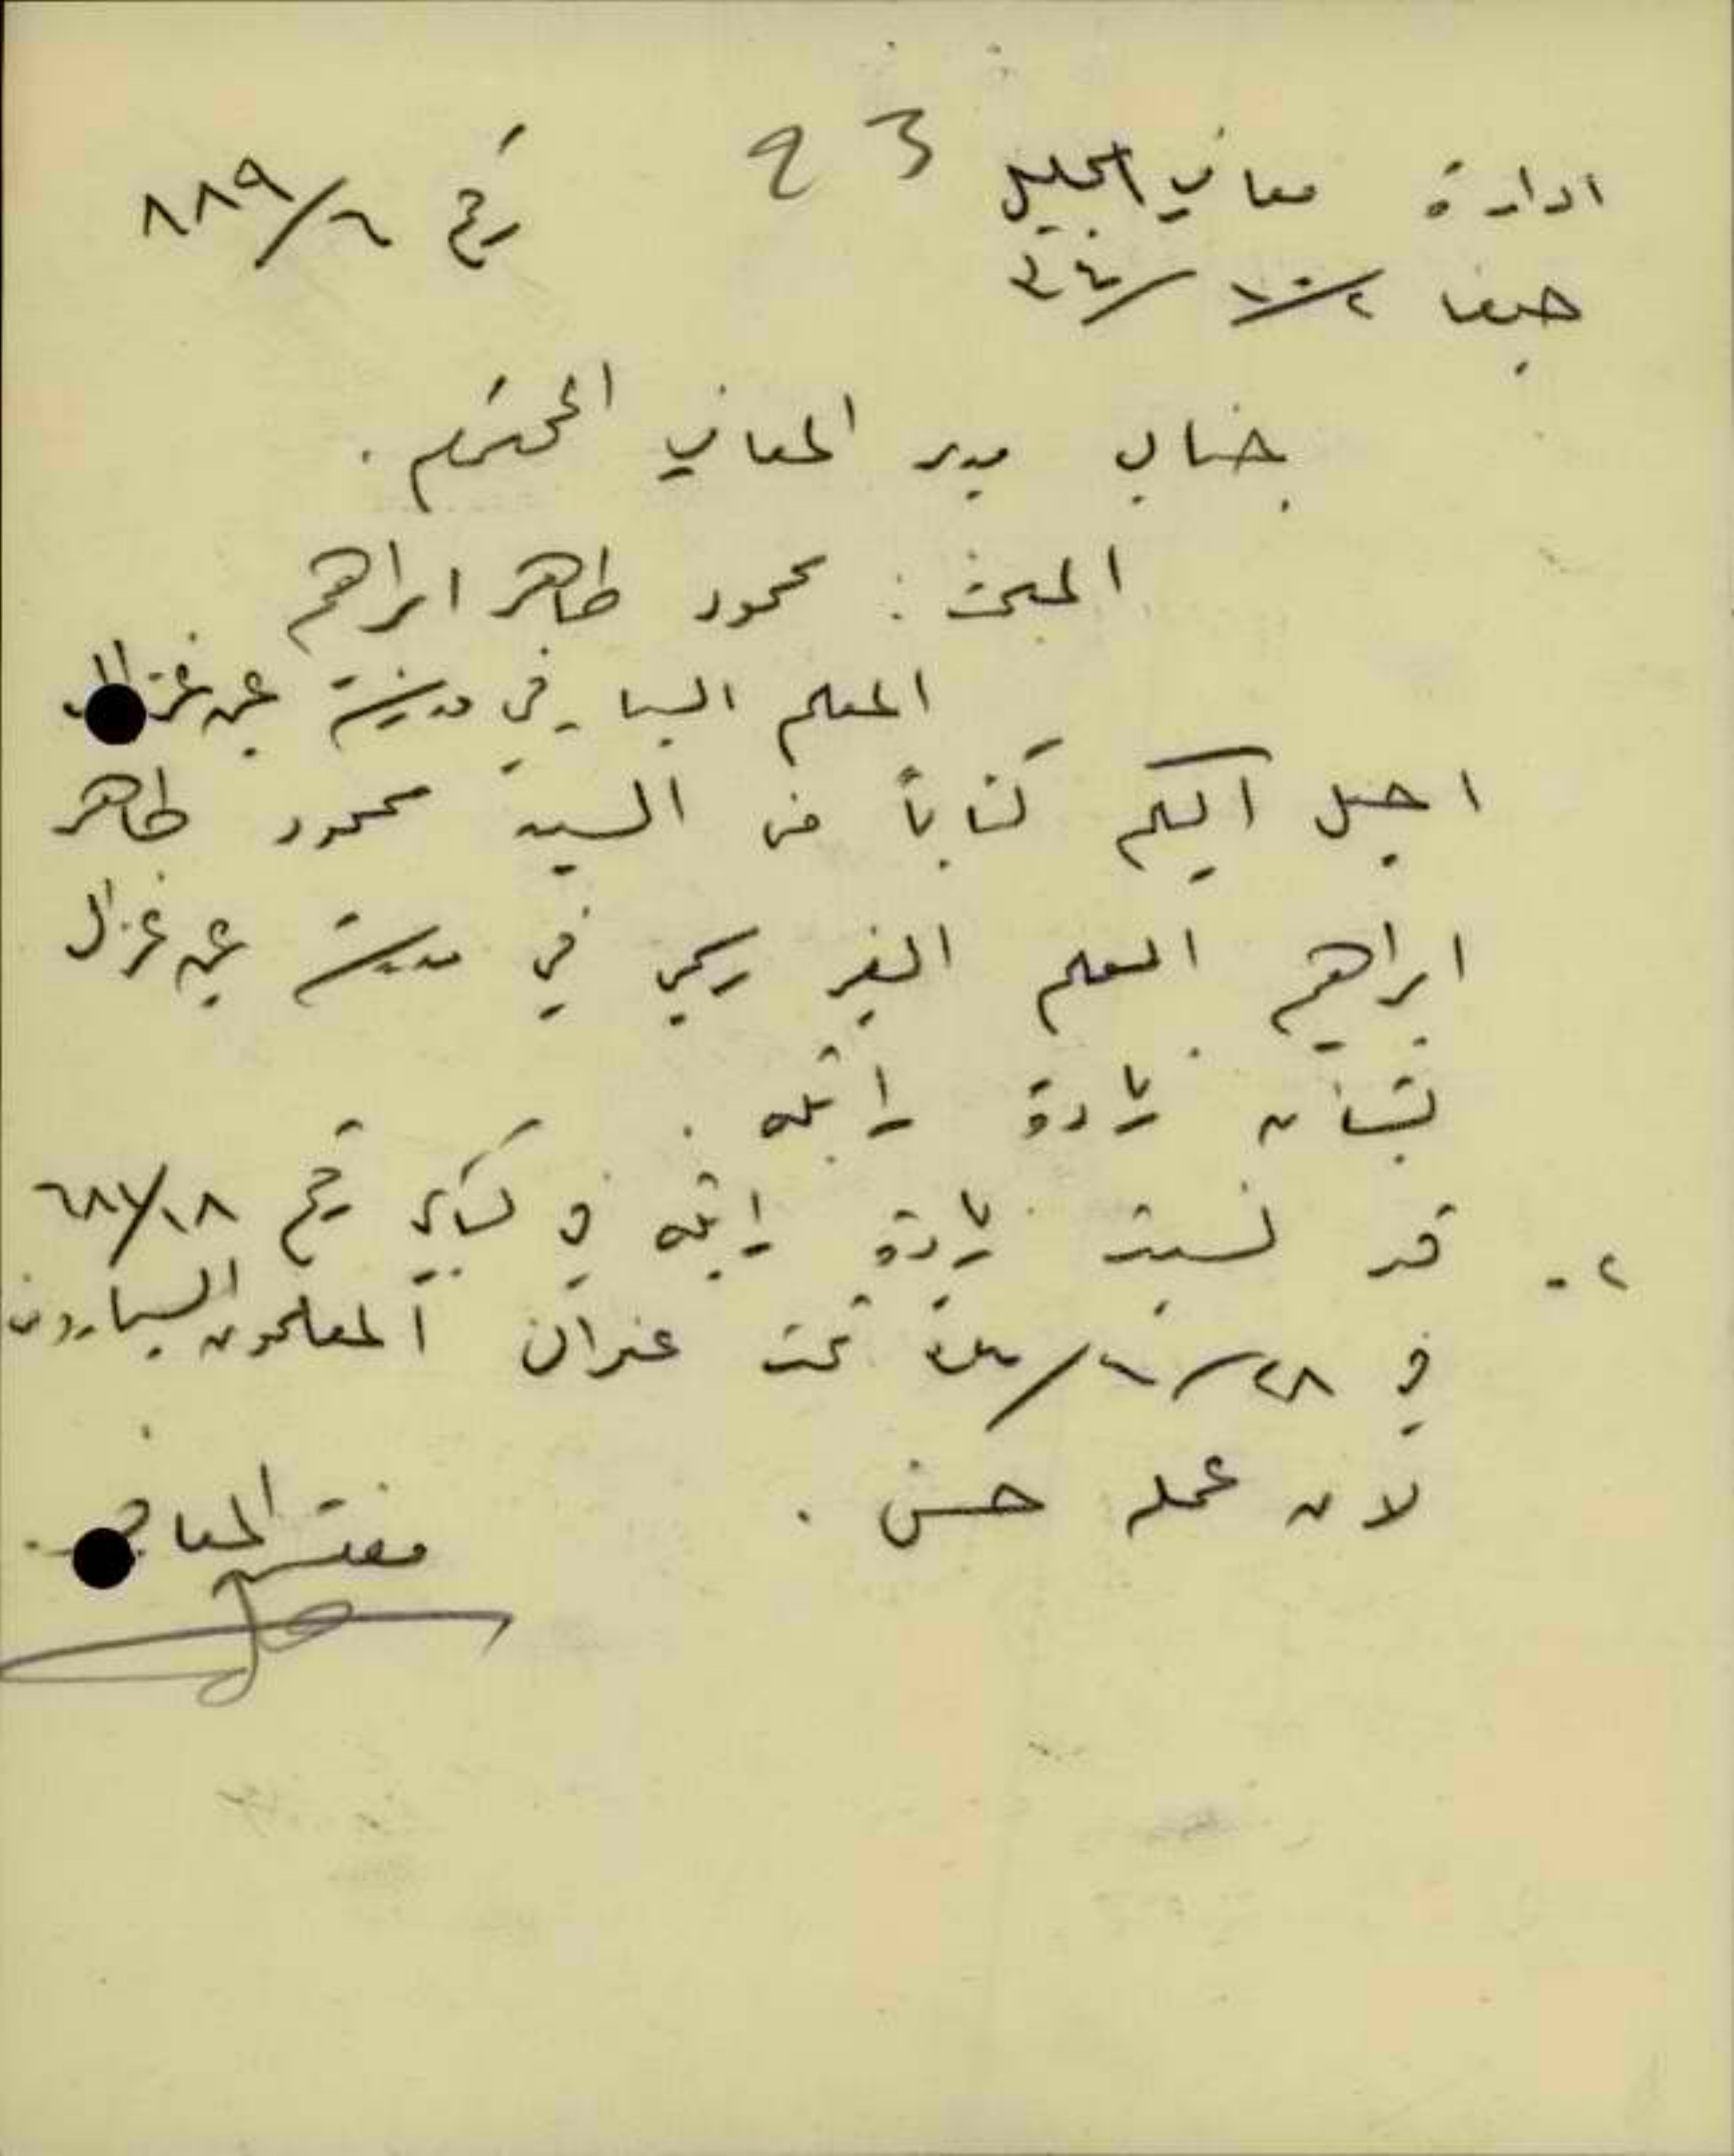 ادارة معارف الجليل 23 رقم ٨٨٩/٦
حيفا ٢/١٠/٤٣
جناب مدير المعارف المحترم.
المبحث : محمود طاهر ابراهيم
المعلم السيار في مدرسة عين غزال
احيل اليكم كتاباً من السيد محمود طاهر
ابراهيم المعلم الغير رسمي في مدرسة عين غزال
بشأن زيادة راتبه .
٢- قد نسبت زيادة راتبه في كتابي رقم
في تحت عنوان المعلمون السيارون
لان عمله حسن .
مفتش المعارف.